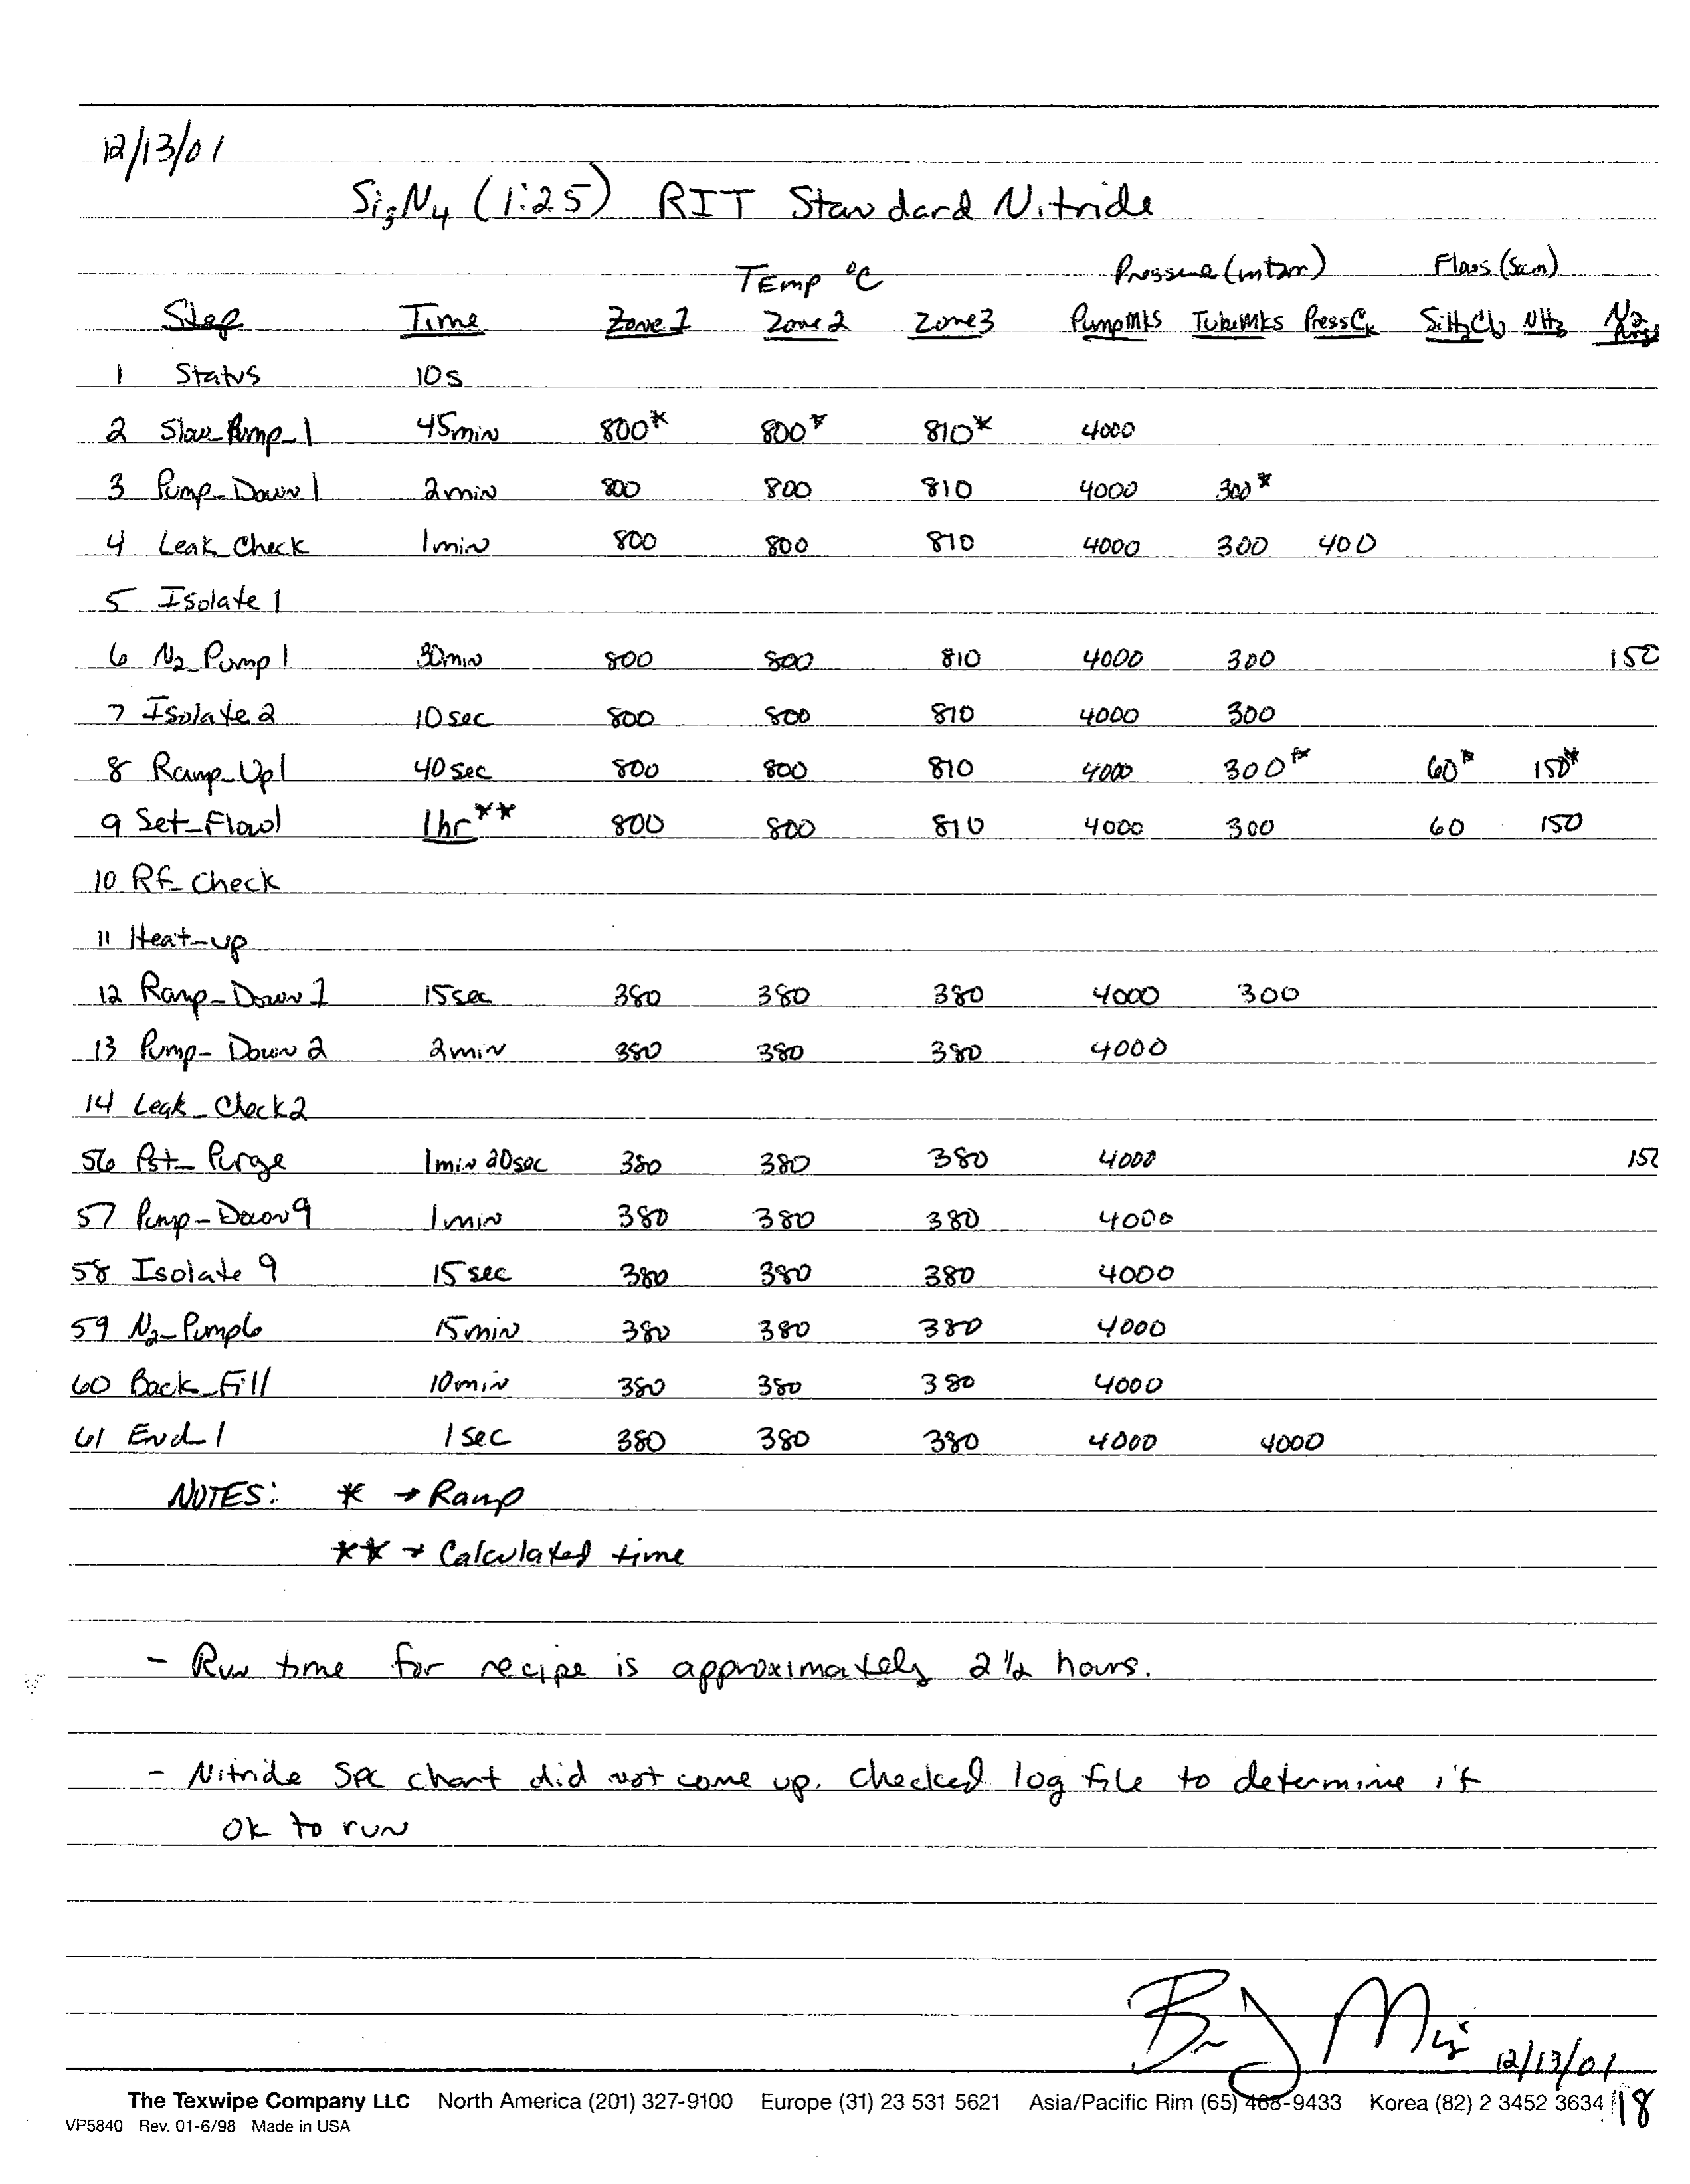 12/13/01
Si3N4 (1:25) RIT Standard Nitride
Temp °C Pressure (mtorr) Flows (sccm)
Step Time Zone 1 Zone 2 Zone 3 PumpMKS TubeMKS PressCk SiH2Cl2 NH3 N2 Purge
1 Status 10s
2 Slow-Pump-1 45min 800* 800* 810* 4000
3 Pump-Down 1 2min 800 800 810 4000 300*
4 Leak_Check 1min 800 800 810 4000 300 400
5 Isolate 1
6 N2_Pump 1 30min 800 800 810 4000 300 150
7 Isolate 2 10 sec 800 800 810 4000 300
8 Ramp_Up1 40 sec 800 800 810 4000 300* 60* 150*
9 Set_Flow1 1hr** 800 800 810 4000 300 60 150
10 RF_Check
11 Heat-up
12 Ramp-Down 1 15sec 380 380 380 4000 300
13 Pump-Down 2 2min 380 380 380 4000
14 Leak_Check2
56 Pst_Purge 1min 20sec 380 380 380 4000 150
57 Pump-Down 9 1min 380 380 380 4000
58 Isolate 9 15 sec 380 380 380 4000
59 N2_Pump6 15min 380 380 380 4000
60 Back_Fill 10min 380 380 380 4000
61 End 1 1 sec 380 380 380 4000 4000
NOTES: * → Ramp
** → Calculated time
- Run time for recipe is approximately 2 1/2 hours.
- Nitride SPC chart did not come up. Checked log file to determine if
OK to run
12/13/01
The Texwipe Company LLC North America (201) 327-9100 Europe (31) 23 531 5621 Asia/Pacific Rim (65) 468-9433 Korea (82) 2 3452 3634 18
VP5840 Rev. 01-6/98 Made in USA